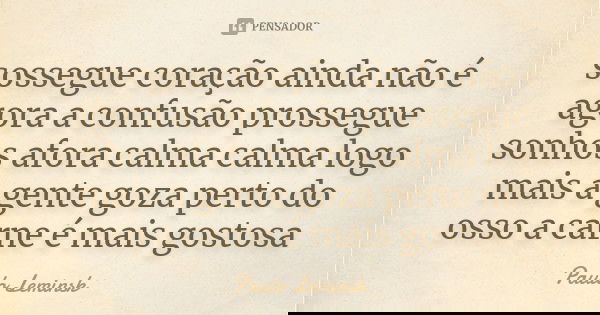 PENSADOR
sossegue coração ainda não é
agora a confusão prossegue
sonhos afora calma calma logo
mais a gente goza perto do
osso a carne é mais gostosa
Paulo Leminsk